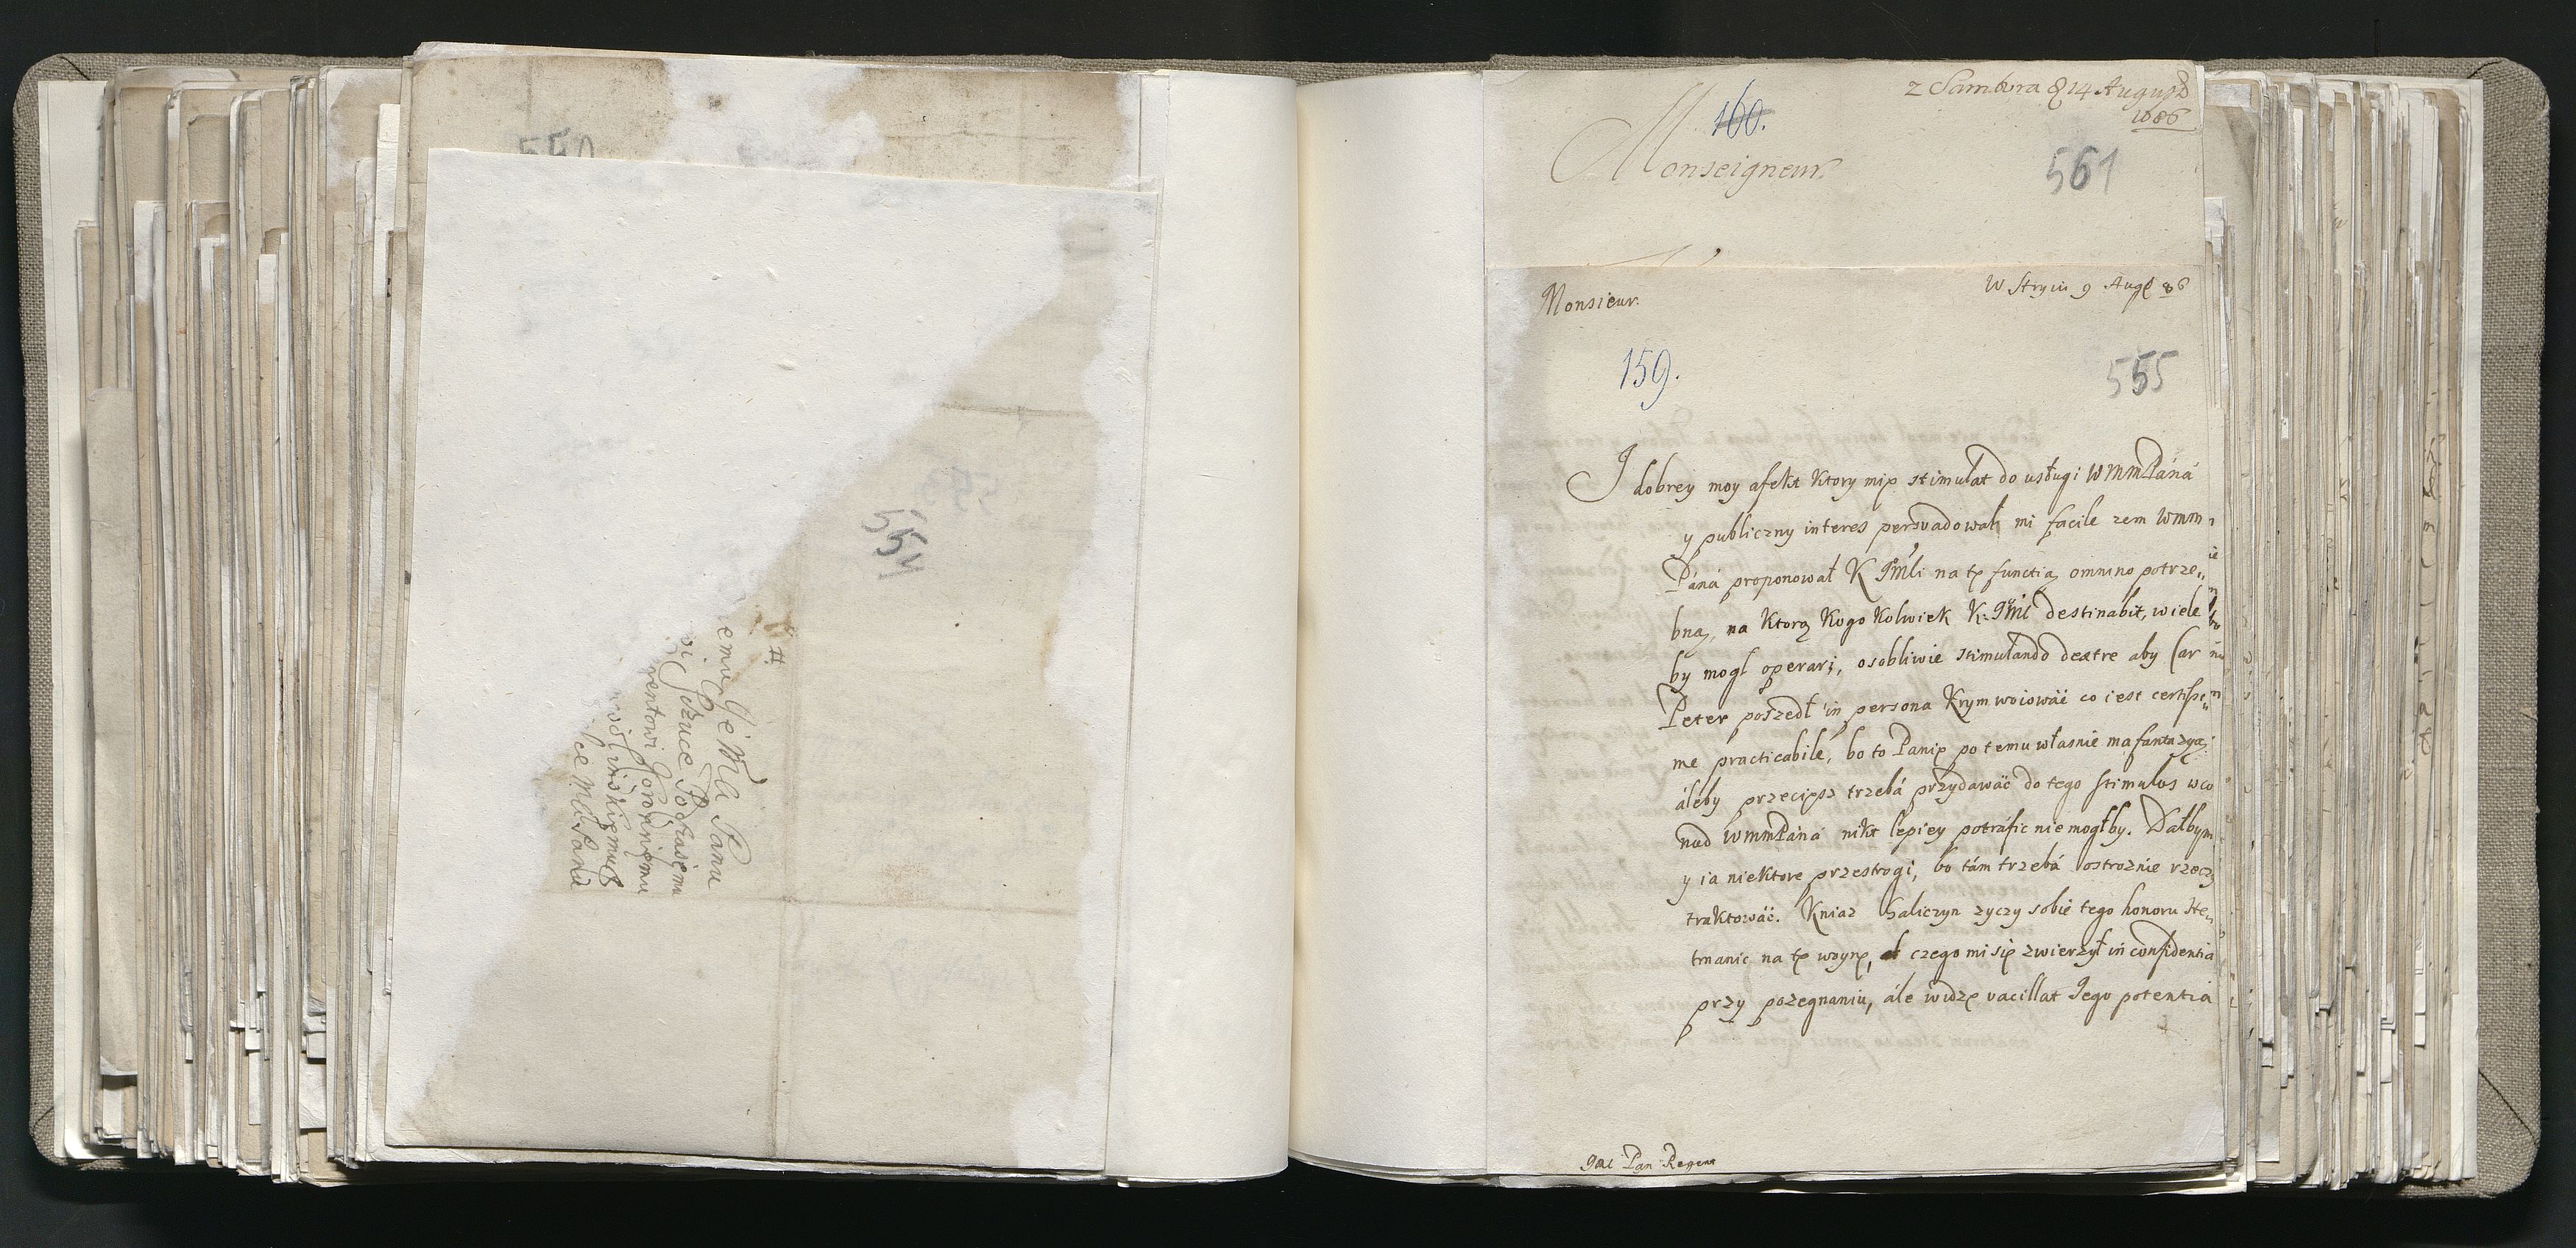 550
554
#
emu Je Mći Panu
Szczuce Podczaszemu
rentowi Koronnemu
Je Mći Panu
z Sambora 14 Augusti
1686
160.
Monseigneur.
561
Monsieur.
W Stryiu 9 Augti 86
159.
555
I dobrey moy afekt ktory mię stimulat do usługi WMMPáná
y publiczny interes persvadowali mi facile zem WMM
Páná proponował K JMći na tę functią omnino potrze„
bną, na ktorą kogo kolwiek K: JMć destinabit, wiele
by mogl operari, osobliwie stimulando dextre aby Car
Peter poszedł in persona Krym woiowáć co iest certissi„
me practicabile, bo to Panię po temu własnie ma fantazyą;
áleby przecięsz trzebá przydawáć do tego stimulos w co
nad WMMPáná nikt lepiey potráfic nie mogłby. Dałbym
y ia niektore przestrogi, bo tám trzebá ostroznie rzeczy
traktowáć. Kniaz Haliczyn zyczy sobie tego honoru He„
tmanic na tę woynę, czego mi się zwierzył in confidentia
przy pozegnaniu, ále widzę vacillat Jego potentia
JMć Pan Regent